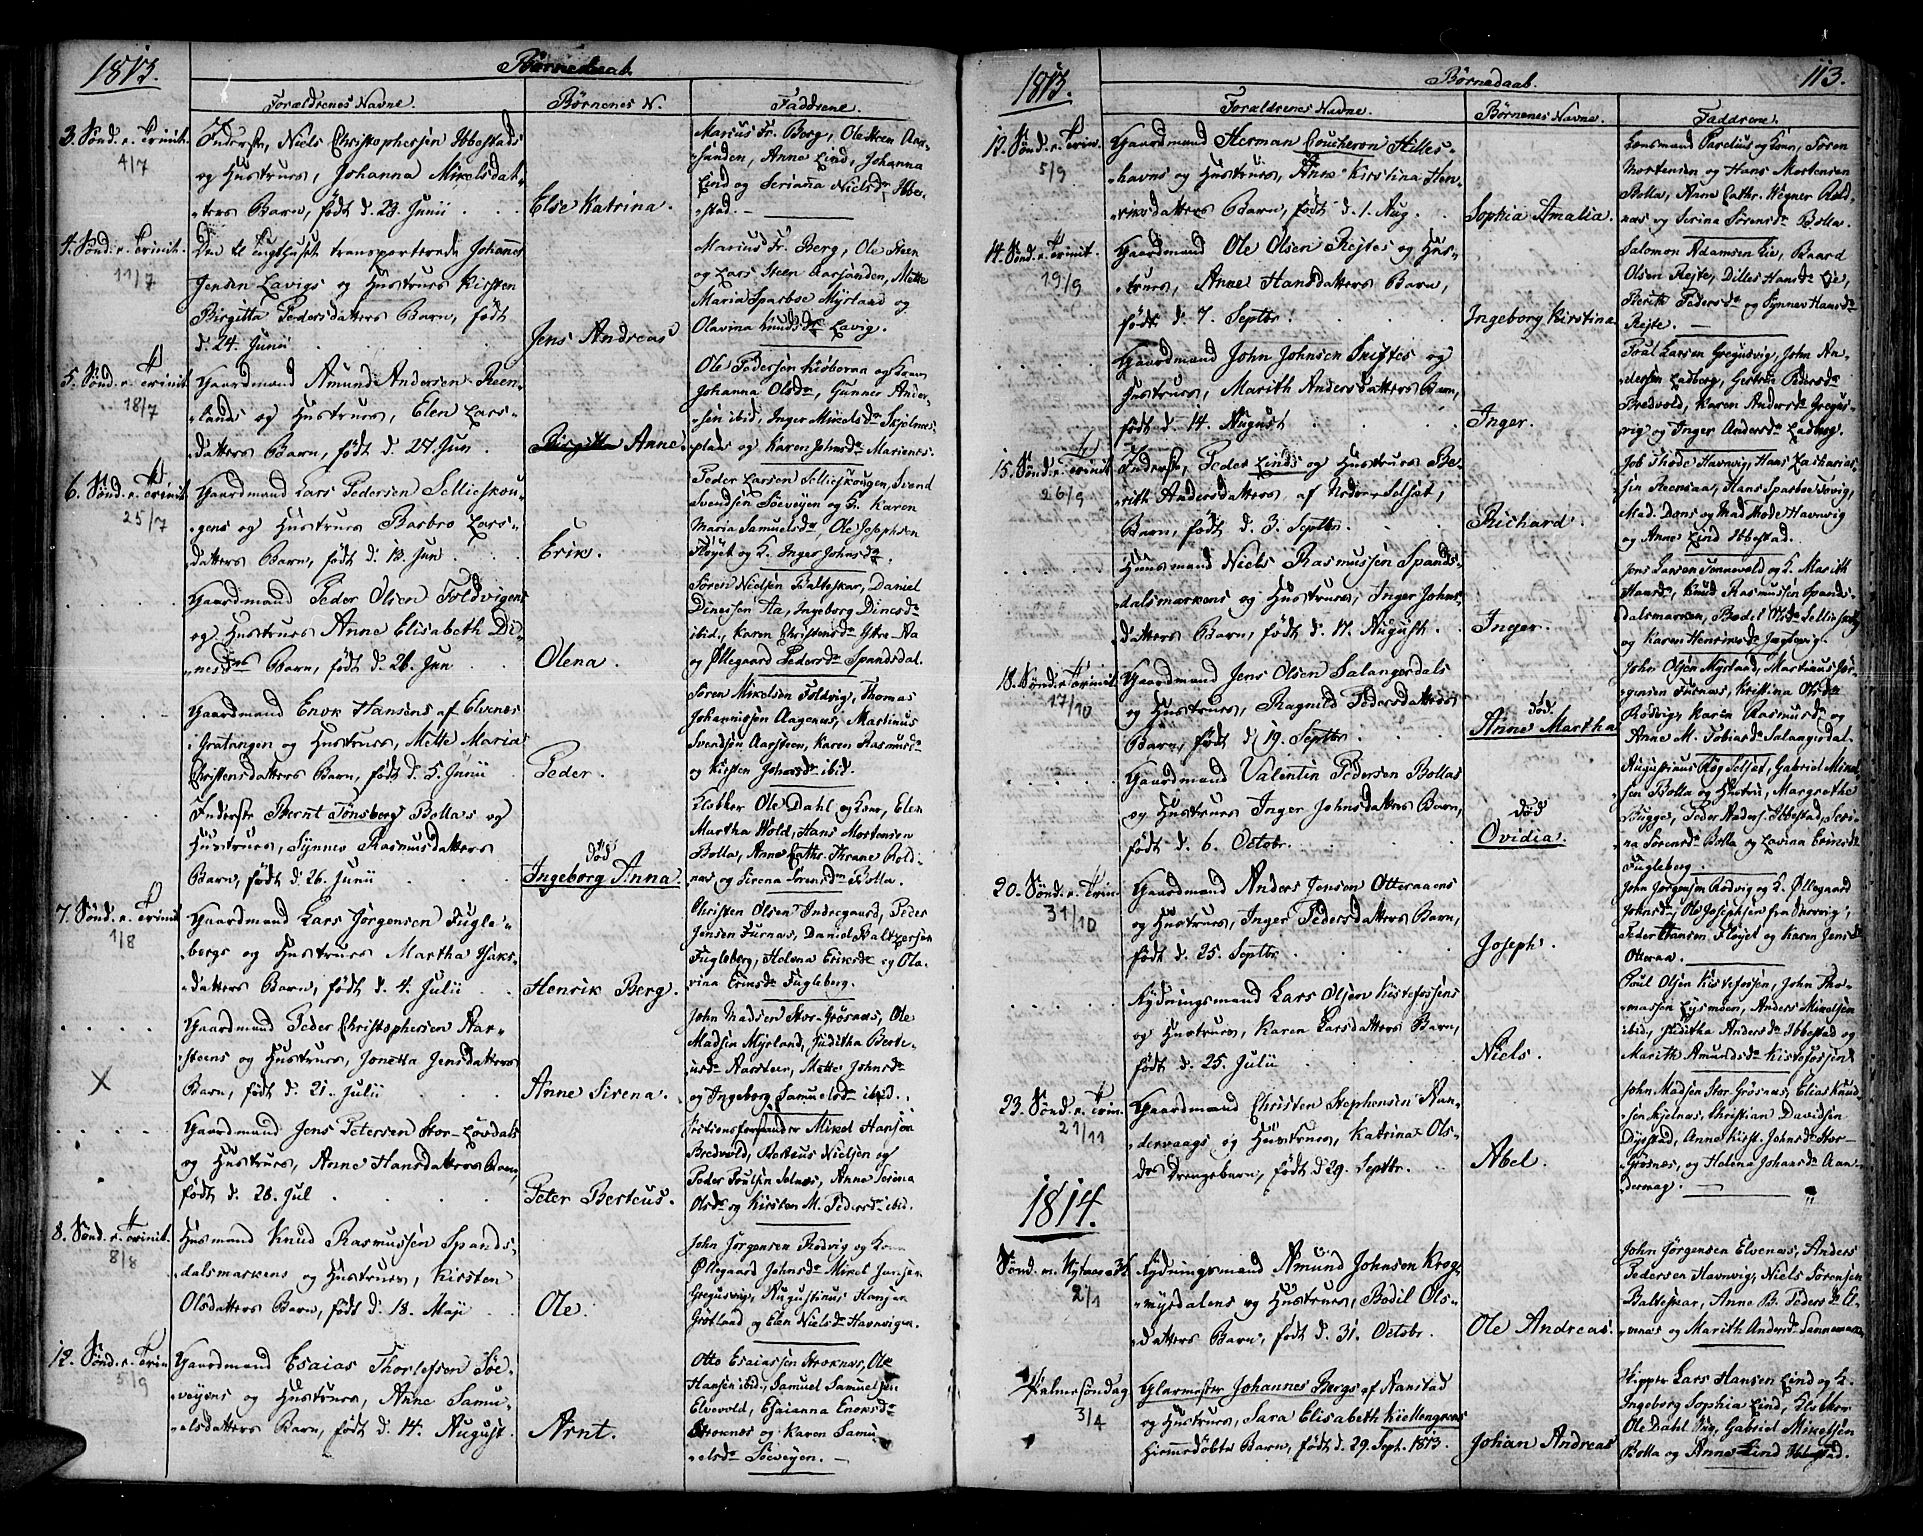 1813.
Børnedaab.
Forældrenes Navne.
Børnenes N.
Faddrene.
3. Sønd. e. Trinit.
4/7
Inderste, Niels Christophersen Ibbestads
og Hustrues, Johanna Mikelsdat-
ters Barn, født d. 23. Junii
Else Katrina.
Marius Fr. Berg, Ole Steen Aar-
sanden, Anne Lind, Johanna
Lind og Seriana Nielsdr Ibbe-
stad.
4. Sønd. e. Trinit.
11/7
Den til Tugthuset transporterede Johannes
Jensen Lavigs og Hustrues Kirsten
Birgitta Pedersdatters Barn, født
d. 24. Junii
Jens Andreas
Marius Fr. Berg, Ole Steen
og Lars Steen Aarsanden, Mette
Maria Sparboe Myrland og
Olavina Knudsdr Lavig.
5. Sønd. e. Trinit.
18/7
Gaardmand Amund Andersen Reen-
lands og Hustrues, Elen Lars-
datters Barn, født d. 27. Jun
Birgitta Anne.
Ole Pedersen og Kone
Johanna Olsdr, Gunner Ander-
sen ibid, Inger Mikelsdr
plads og Karen Johnsdr Marienes.
6. Sønd. e. Trinit.
25/7
Gaardmand Lars Pedersen Sellieskou-
gens og Hustrues Barbro Lars-
datters Barn, født d. 13. Jun
Erik.
Peder Larsen Sellieskougen, Svend
Svendsen Søeveyen og K. Karen
Maria Samuelsdr, Ole Josephsen
Fløyet og K. Inger Johnsdr.
Gaardmand Peder Olsen Foldvigens
og Hustrues Anne Elisabeth Di-
nesdrs Barn, født d. 26. Jun
Olena.
Søren Nielsen Balteskar, Daniel
Dinesen Aa, Ingeborg Dinesdr
ibid., Karen Christensdr Ytre-Aa
og Øllegaard Pedersdr Spandsdal.
Gaardmand Enok Hansens af Elvenes
i Gratangen og Hustrues, Mette Maria
Christensdatters Barn, født d. 5. Junii
Peder.
Søren Mikelsen Foldvig, Thomas
Johannissen Aagenæs, Martinus
Svendsen Aarsteen, Karen Rasmusdr
og Kirsten Johansdr ibid.
Inderste Bernt Tønsberg Bollas og
Hustrues, Synnev Rasmusdatters
Barn, født d. 26. Junii
død
Ingeborg Anna.
Klokker Ole Dahl og Kone, Elen
Martha Wold, Hans Mortensen
Bolla, Anne Cathr. Krane Rold-
næs og Sirena Sørensdr Bolla.
7. Sønd. e. Trinit
1/8
Gaardmand Lars Jørgensen Fugle-
bergs og Hustrues Martha Isaks-
datters Barn, født d. 4. Julii
Henrik Berg.
Christen Olsen Indregaard, Peder
Jensen Furnæs, Daniel Baltzersen
Fugleberg, Helena Eriksdr og Ola-
vina Ericsdr Fugleberg.
Gaardmand Peder Christophersen Aar-
steens og Hustrues, Jonetta Jensdatters
Barn, født d. 21. Julii
X
Anne Sirena.
John Madsen Stor-Grøsnæs, Ole
Madsen Myrland, Juditha Berte-
usdr Aarsteen, Mette Johnsdr
og Ingeborg Samuelsdr ibid.
Gaardmand Jens Petersen Stor-Løvdals
og Hustrues, Anne Hansdatters Barn,
født d. 28. Jul
Peter Berteus.
Mikel Hansen
Bredvold, Berteus Nielsen og
Peder Poulsen Selnæs, Anne Serina
Olsdr og Kirsten M. Pedersdr ibid.
8. Sønd. e. Trinit.
8/8
Husmand Knud Rasmussen Spands-
dalsmarkens og Hustrues, Kirsten
Olsdatters Barn, født d. 18. Maji
Ole.
John Jørgensen Rødvig og Kone
Øllegaard Johnsdr, Mikel Jensen
Gregusvig, Augustinus Hansen
Grøtland og Elen Nielsdr Havnvigen.
12. Sønd. e. Trin
5/9
Gaardmand Esaias Thorlefsen Søe-
veyens og Hustrues, Anne Samu-
elsdatters Barn, født d. 14. August.
Arnt.
Otto Esaiassen Stroknæs, Ole
Hansen ibid., Samuel Samuelsen
Elvevold, Esaianna Enoksdr
Stroknes og Karen Samu
elsdr Søeveyen.
1813.
Børnedaab.
113.
Forældrenes Navne.
Børnenes Navne.
Faddrene.
12. Sønd. e. Trin.
5/9
Gaardmand Herman Coucheron Hilles-
havns og Hustrues, Anne Kirstina Hen-
riksdatters Barn, født d. 1. Aug.
Sophia Amalia.
Lensmand Parelius og Kone, Søren
Mortensen og Hans Mortensen
Bolla, Anne Cathr. Wegner Rold-
næs og Serina Sørensdr Bolla.
14. Sønd. e. Trinit.
19/9
Gaardmand Ole Olsen Rejtes og Hus-
trues, Anne Hansdatters Barn,
født d. 7. Septbr.
Ingeborg Kirstina.
Salomon Adamsen Lie, Baard
Olsen Rejte, Dilles Hansdr Lie,
Berith Pedersdr og Synnev Hansdr
Rejte.
Gaardmand John Johnsen Suftes og
Hustrues, Marith Andersdatters Barn,
født d. 14. August
Inger.
Poul Larsen Gregusvig, John An-
dersen Ladberg, Gertrue Pedersdr
Bredvold, Karen Andersdr Gregus-
vig og Inger Andersdr Ladberg.
15. Sønd. e. Trinit
26/9
Inderste, Peder Linds og Hustrues Be-
rith Andersdatters af Nedre-Selset,
Barn, født d. 3. Septbr.
Richard.
Job Thode Havnvig, Hans Zacharias-
sen Reensaa, Hans Sparboe,
Mad. Dons og Mad Thode Havnvig
og Anne Lind Ibbestad.
Huusmand Niels Rasmussen Spands-
dalsmarkens og Hustrues, Inger Johns-
datters Barn, født d. 17. August.
Inger.
Jens Larsen Sonnevold og K. Marith
Hansdr, Knud Rasmussen Spands-
dalsmarken, Bodel Olsdr
og Karen Henriksdr Jægtevig.
18. Sønd. e. Trinit.
17/10
Gaardmand Jens Olsen Salangsdals
og Hustrues, Ragnild Pedersdatters
Barn, født d. 19. Septbr.
død.
Anne Martha
John Olsen Myrland, Martinus Jør-
gensen Furnæs, Kristina Olsdr
Rødvig, Karen Rasmusdr og
Anne M. Tobiasdr Salangsdal.
Gaardmand Valentin Pedersen Bollas
og Hustrues Inger Johnsdatters Barn,
født d. 6. Octobr.
død
Ovidia.
Augustinus Røg Selset, Gabriel Mikel-
sen Bolla og Hustru, Margrethe
Bugge, Peder Anders. Ibbestad, Seri-
na Sørensdr Bolla og Lavina Ericsdr
Fugleberg.
20. Sønd. e. Trin.
31/10
Gaardmand Anders Jensen Otteraaens
og Hustrues, Inger Pedersdatters Barn,
født d. 25. Septbr.
Joseph.
John Jørgensen Rødvig og K. Øllegaard
Johnsdr, Ole Josephsen fra Skorvig,
Peder Hansen Fløyet og Karen Jensdr
Otteraa.
Rydningsmand Lars Olsen Kistefossens
og Hustrues, Karen Larsdatters Barn,
født d. 25. Julii
Niels.
Poul Olsen Kistefossen, John Tho-
massen Lysmoen, Anders Mikelsen
ibid, Juditha Andersdr Ibbestad og
Marith Amundsdr Kistefossen
23. Sønd. e. Trin.
21/11
Gaardmand Christen Stephensen Aan-
dervaags og Hustrues, Katrina Ols-
drs Drengebarn, født d. 29. Septbr.
Abel.
John Madsen Stor-Grøsnæs, Elias Knud
sen Kjelnæs, Christian Davidsen
Dyrstad, Anne Kirst. Johnsdr Stor-
Grøsnæs, og Helena Johansdr Aan-
dervag.
1814.
Sønd. m. Nytaar og 3K.
2/1
Rydningsmand Amund Johnsen Krog-
mysdalens og Hustrues, Bodil Ols-
datters Barn, født d. 31. Octobr.
Ole Andreas.
John Jørgensen Elvenæs, Anders
Pedersen Havnvig, Niels Sørensen
Baltescar, Anne B. Pedersdr El-
venæs og Marith Andersdr
Palmesøndag
3/4
Glarmester Johannes Bergs af Aanstad
og Hustrues, Sara Elisabeth Kiellengrens
Hiemmedøbte Barn, født d. 29. Sept. 1813.
Johan Andreas
Skipper Lars Hansen Lind og K.
Ingeborg Sophia Lind, Klokker
Ole Dahl, Gabriel Mikelsen
Bolla og Anne Lind Ibbestad.